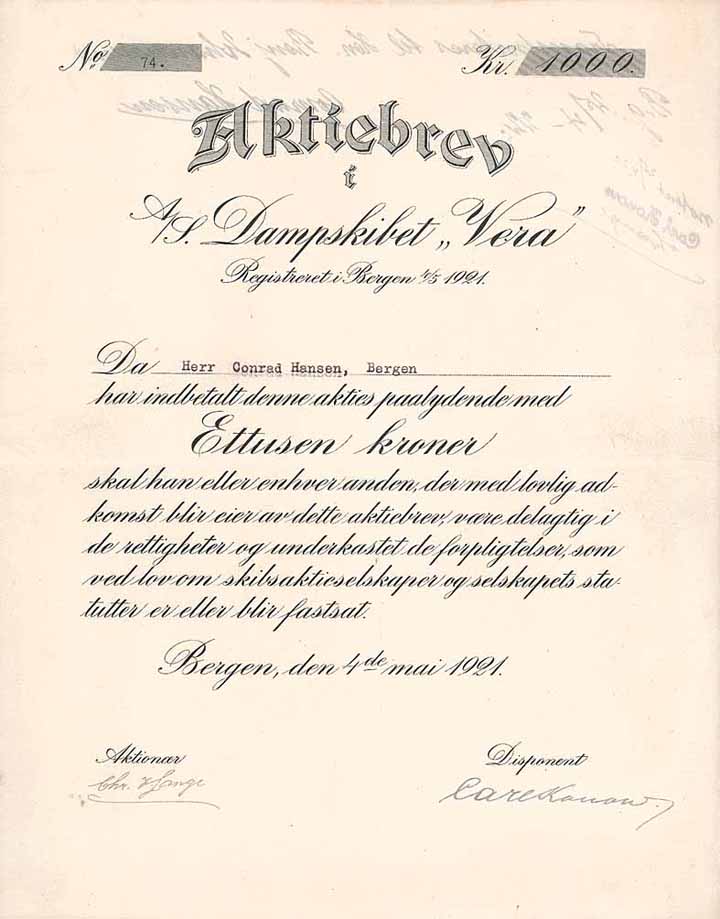 No 74.
Kr. 1000.
Aktiebrev
i
A/S. Dampskibet „Vera”
Registreret i Bergen 4/5 1921.
Da Herr Conrad Hansen, Bergen
har indbetalt denne akties paalydende med
Ettusen kroner
skal han eller enhver anden, der med lovlig ad-
komst blir eier av dette aktiebrev, være delagtig i
de rettigheter og underkastet de forpligtelser, som
ved lov om skibsaktieselskaper og selskapets sta-
tutter er eller blir fastsat.
Bergen, den 4de mai 1921.
Aktionær
Disponent
Chr.
Carl Konow